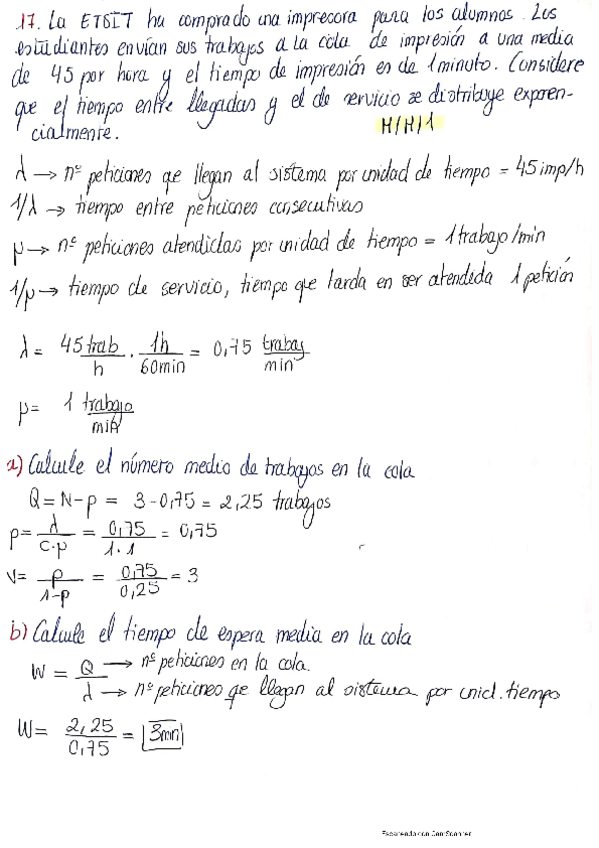 17. La ETSIT ha comprado una imprecora para los alumnos. Los
estudiantes envían sus trabajos a la cola de impresión a una media
de 45 por hora y el tiempo de impresión es de 1 minuto. Considere
que el tiempo entre llegadas y el de servicio se distribuye exponen-
cialmente. M/M/1
λ → nº peticiones qe llegan al sistema por unidad de tiempo = 45 imp/h
1/λ → tiempo entre peticiones consecutivas
μ → nº peticiones atendidas por unidad de tiempo = 1 trabajo/min
1/μ → tiempo de servicio, tiempo que tarda en ser atendida 1 petición
λ = 45 trab/h · 1h/60min = 0,75 trabaj/min
μ = 1 trabajo/min
a) Calcule el número medio de trabajos en la cola
Q = N-ρ = 3-0,75 = 2,25 trabajos
ρ = λ/c·μ = 0,75/1·1 = 0,75
N = ρ/1-ρ = 0,75/0,25 = 3
b) Calcule el tiempo de espera media en la cola
W = Q/λ → nº peticiones en la cola.
→ nº peticiones qe llegan al sistema por unid. tiempo
W = 2,25/0,75 = 3min
Escaneado con CamScanner